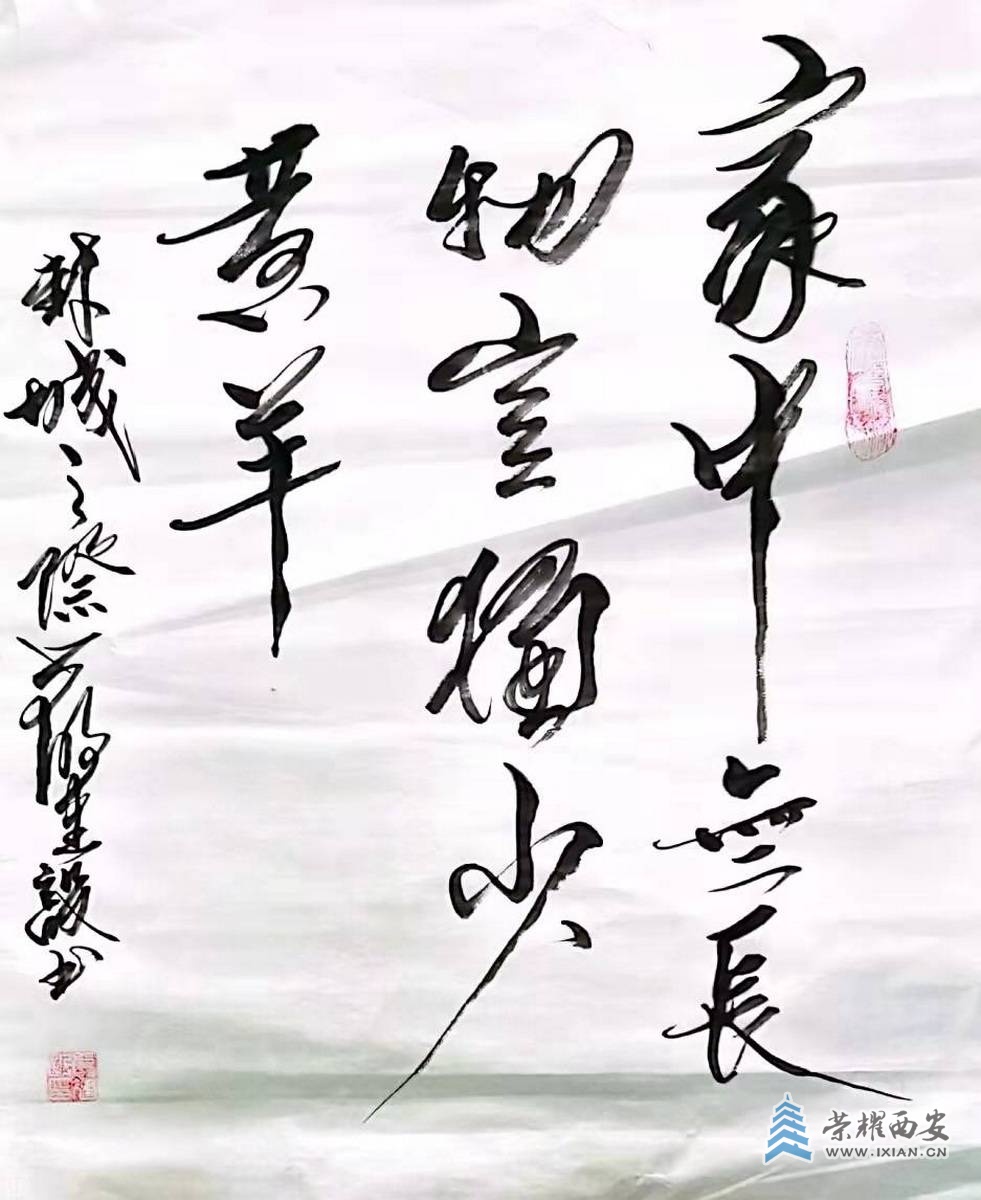 家中無長
物室獨少
黄羊
封城之際建設书
荣耀西安
WWW.IXIAN.CN